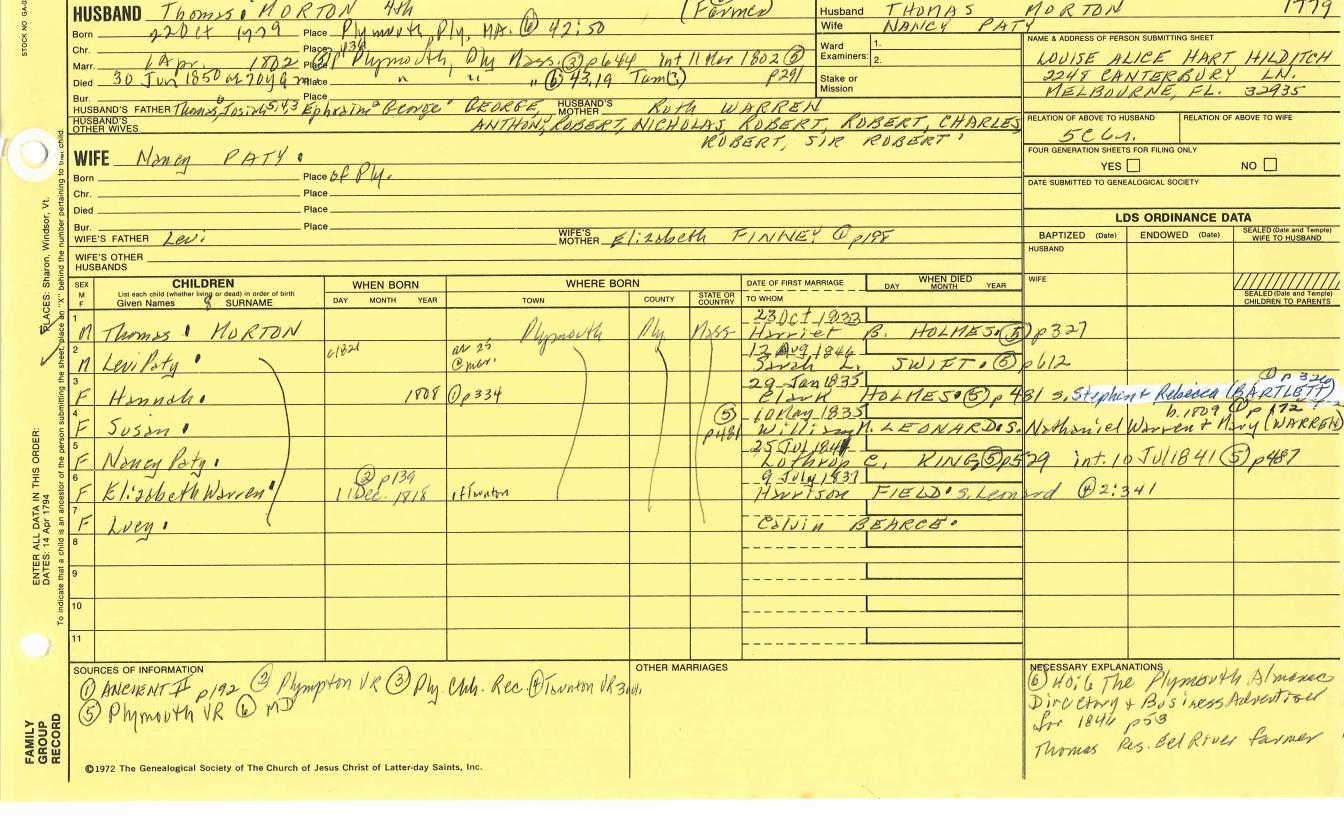 STOCK NO. GA-0
HUSBAND Thomas MORTON 4th (Farmer)
Born 22 Oct 1779 Place Plymouth, Ply, MA. ⑥ 42:50
Chr. Place
Marr. 1 Apr. 1802 Place Plymouth, Ply Mass. p644 int 11 Mar 1802 ⑤ p291
Died 30 Jun 1850 Place " " " ⑥ 43,19
Bur. Place
HUSBAND'S FATHER Thomas, Josiah 5,4,3 Ephraim George GEORGE, HUSBAND'S MOTHER Ruth WARREN
HUSBAND'S OTHER WIVES ANTHONY, ROBERT, NICHOLAS, ROBERT, ROBERT, CHARLES
ROBERT, SIR ROBERT
WIFE Nancy PATY.
Born Place of Ply.
Chr. Place
Died Place
Bur. Place
WIFE'S FATHER Levi WIFE'S MOTHER Elizabeth FINNEY ① p198
WIFE'S OTHER HUSBANDS
Husband THOMAS MORTON 1779
Wife NANCY PATY
Ward Examiners: 1.
2.
Stake or Mission
NAME & ADDRESS OF PERSON SUBMITTING SHEET
LOUISE ALICE HART HILDITCH
2248 CANTERBURY LN.
MELBOURNE, FL. 32935
RELATION OF ABOVE TO HUSBAND RELATION OF ABOVE TO WIFE
5C6r.
FOUR GENERATION SHEETS FOR FILING ONLY
YES NO
DATE SUBMITTED TO GENEALOGICAL SOCIETY
LDS ORDINANCE DATA
BAPTIZED (Date) ENDOWED (Date) SEALED (Date and Temple) WIFE TO HUSBAND
HUSBAND
WIFE
SEALED (Date and Temple) CHILDREN TO PARENTS
SEX M F CHILDREN WHEN BORN WHERE BORN DATE OF FIRST MARRIAGE WHEN DIED
List each child (whether living or dead) in order of birth
Given Names SURNAME DAY MONTH YEAR TOWN COUNTY STATE OR COUNTRY TO WHOM DAY MONTH YEAR
1 M Thomas MORTON Plymouth Ply Mass 23 Oct 1833 Harriet B. HOLMES. ⑤ p327
2 M Levi Paty. c1821 ae 25 @ mar. 12 Aug 1846 Sarah L. SWIFT. ⑤ p612
3 F Hannah. 1808 ① p334 29 Jan 1835 Clark HOLMES. ⑤ p 481 s. Stephen + Rebecca (BARTLETT) ① p 326
4 F Susan. ⑤ p481 10 May 1835 William N. LEONARD. S. Nathaniel Warren + Mary (WARREN) b. 1809 ① p172
5 F Nancy Paty. 25 Jul 1841 Lothrop C. KING, ⑤ p529 int. 10 Jul 1841 ⑤ p487
6 F Elizabeth Warren ② p139 1 Dec. 1818 of Taunton 9 July 1837 Harrison FIELD. s. Leonard ④ 2:341
7 F Lucy. Calvin BEARCE.
8
9
10
11
SOURCES OF INFORMATION
① ANCIENT II p192 ② Plympton VR ③ Ply. Chh. Rec. ④ Taunton VR
⑤ Plymouth VR ⑥ MD
OTHER MARRIAGES
NECESSARY EXPLANATIONS
⑥ The Plymouth Almanac
Directory + Business Advertiser
for 1846 p53
Thomas Res. Eel River farmer
PLACES: Sharon, Windsor, Vt.
ENTER ALL DATA IN THIS ORDER:
DATES: 14 Apr 1794
To indicate that a child is an ancestor of the person submitting the sheet, place an "X" behind the number pertaining to that child.
FAMILY GROUP RECORD
©1972 The Genealogical Society of The Church of Jesus Christ of Latter-day Saints, Inc.